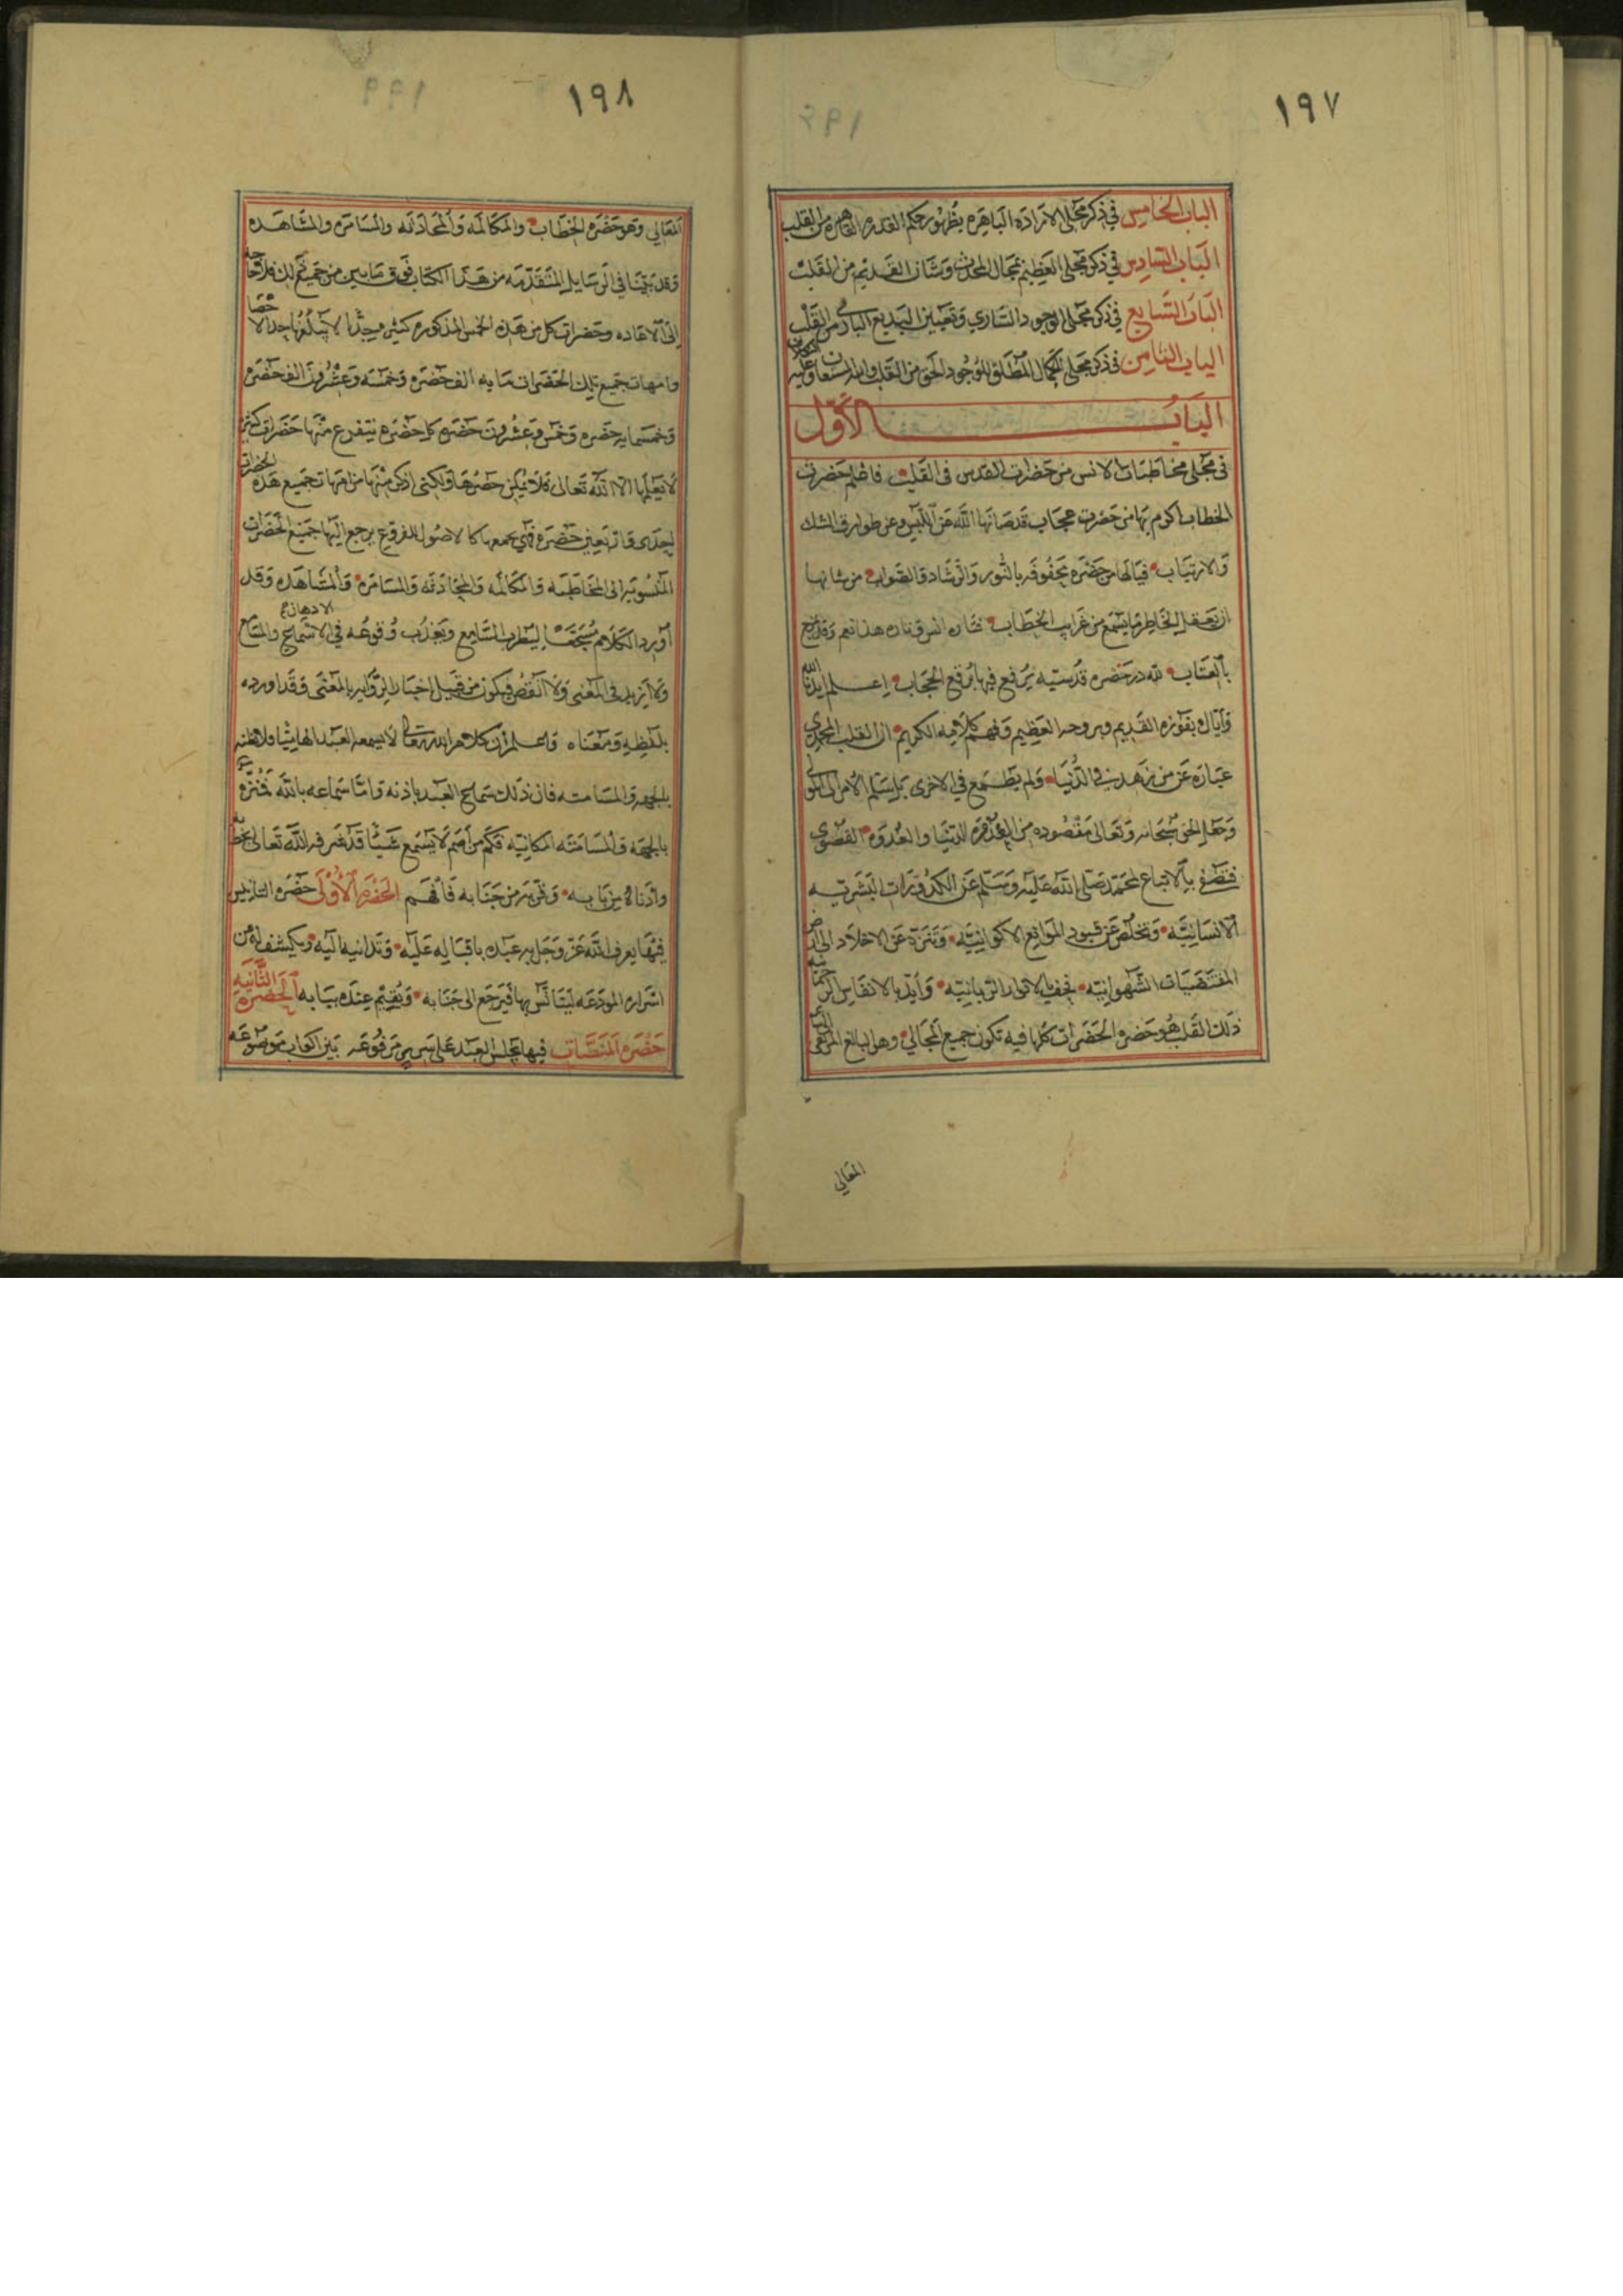 ١٩٧
الباب الخامس في ذكر مجلى الارادة الباهره بظهور حكم القدره القاهره من القلب
الباب السادس في ذكر مجلى العظيم بمجال المحدث وشان القديم من القلب
الباب السابع في ذكر مجلى الوجود الساري وتعيين البديع الباري من القلب
الباب الثامن في ذكر مجلى الكمال المطلق للوجود الحق من القلب والله المستعان وعليه التكلان
الباب الاول
في مجلى مخاطبات الانس من حضرات القدس في القلب فاعلم حضرت
الخطاب اكرم بها من حضرت عجاب قد صانها الله عن اللبس وعن طوارق الشك
والارتياب فيالها من حضره محفوفه بالنور والرشاد والصواب من شانها
ان يعقل الخاطر ما يسمع من غرايب الخطاب فتاره انس وتاره هذا نعم وقد
بالعتاب لله در حضره قدسيه يرفع فيها برقع الحجاب اعلم ايدنا الله
واياك بنوره القديم وبروحه العظيم وفهم كلامه الكريم ان القلب المحمدي
عباره عن من زهد في الدنيا ولم يطمع في الاخرى بل سلم الامر الى المولى
وجعل الحق سبحانه وتعالى مقصوده من العدوه الدنيا والعدوه القصوى
فتصفى بالاتباع لمحمد صلى الله عليه وسلم عن الكدورات البشريه
الانسانيه وتخلص عن قيود الموانع الاكوانيه وتنزه عن الاخلاد الى ارض
المقتضيات الشهوانيه فحف بالانوار الربانيه وايد بالانفاس الرحمانيه
ذلك القلب هو حضره الحضرات كلها فيه تكون جميع المجالي وهو البالغ المرتقى
المعالي
١٩٨
المعالي وهو حضره الخطاب والمكالمه والمحادثه والمسامره والمشاهده
وقد بينا في الرسايل المتقدمه من هذا الكتاب فوق ما يبين من جميع ذلك فلا حاجه
الى الاعاده وحضرات كل من هذه الخمس المذكوره كثيره جدا لا يبلغها احد الاحصا
وامهات جميع تلك الحضرات مايه الف حضره وخمسه وعشرون الف حضره
وخمسمايه حضره وخمس وعشرون حضره كل حضره يتفرع منها حضرات كثيره
لا يعلمها الا الله تعالى فلا يمكن حصرها ولكني اذكر منها من امهات جميع هذه الحضرات
احدى واربعين حضره فهي بجمعها كالاصول للفروع يرجع اليها جميع الحضرات
المنسوبه الى المخاطبه والمكالمه والمحادثه والمسامره والمشاهده وقد
اورد الكلام مسجعا ليطرب السامع ويعذب وقوعه في الاسماع والمسامع الاذهان
ولا ازيد في المعنى ولا انقص فيكون من قبيل اخبار الروايه بالمعنى وقد اورده
بلفظه ومعناه واعلم ان كلام الله تعالى لا يسمعه العبد
بالجهه والمسامته فان ذلك سماع العبد باذنه واما سماعه بالله فمنزه
بالجهه والمسامته المكانيه فكم من اصم لا يسمع شيئا قد عرفه الله تعالى بخطابه
وادناه من بابه وقربه من جنابه فافهم الحضره الاولى حضره التانيس
فيها يعرف الله عز وجل عبده باقباله عليه وتدانيه اليه ويكشف له عن
اسراره المودعه ليتانس بها فيرجع الى جنابه ويقيم عنده ببابه الحضره الثانيه
حضره المنصات فيها يجلس العبد على سرير مرفوعه بين اكواب موضوعه